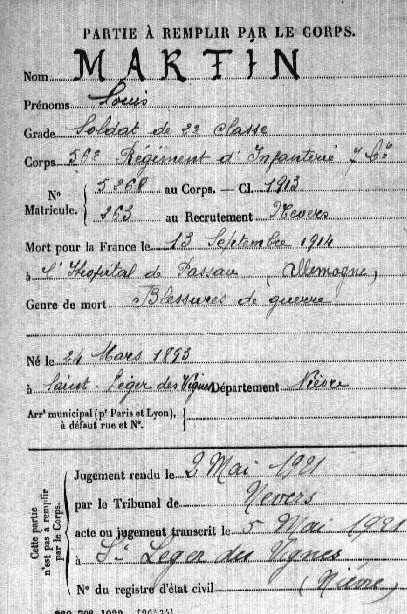 PARTIE À REMPLIR PAR LE CORPS.
Nom MARTIN
Prénoms Louis
Grade Soldat de 2e Classe
Corps 56e Régiment d'Infanterie 7 Cie
Nº Matricule. 5268 au Corps. — Cl. 1913
263 au Recrutement Nevers
Mort pour la France le 13 Septembre 1914
à l'Hopital de Passau (Allemagne)
Genre de mort Blessures de guerre
Né le 24 Mars 1893
à Saint Léger des Vignes Département Nièvre
Arrt municipal (pr Paris et Lyon),
à défaut rue et Nº.
Cette partie
n'est pas à remplir
par le Corps.
Jugement rendu le 2 Mai 1921
par le Tribunal de Nevers
acte ou jugement transcrit le 5 Mai 1921
à St Leger des Vignes
Nº du registre d'état civil (Nièvre)